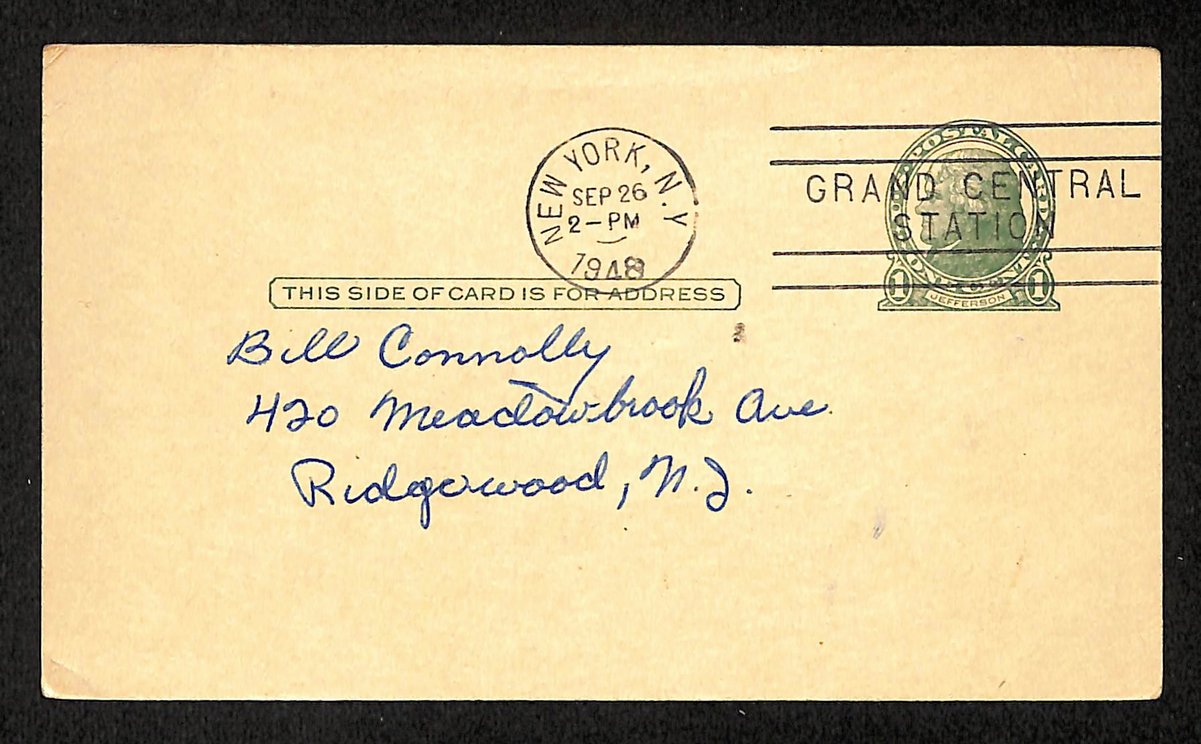 NEW YORK, N.Y
SEP 26
2-PM
1948
GRAND CENTRAL
STATION
POSTAL CARD
1 JEFFERSON 1
THIS SIDE OF CARD IS FOR ADDRESS
Bill Connolly
420 Meadowbrook Ave.
Ridgewood, N.J.